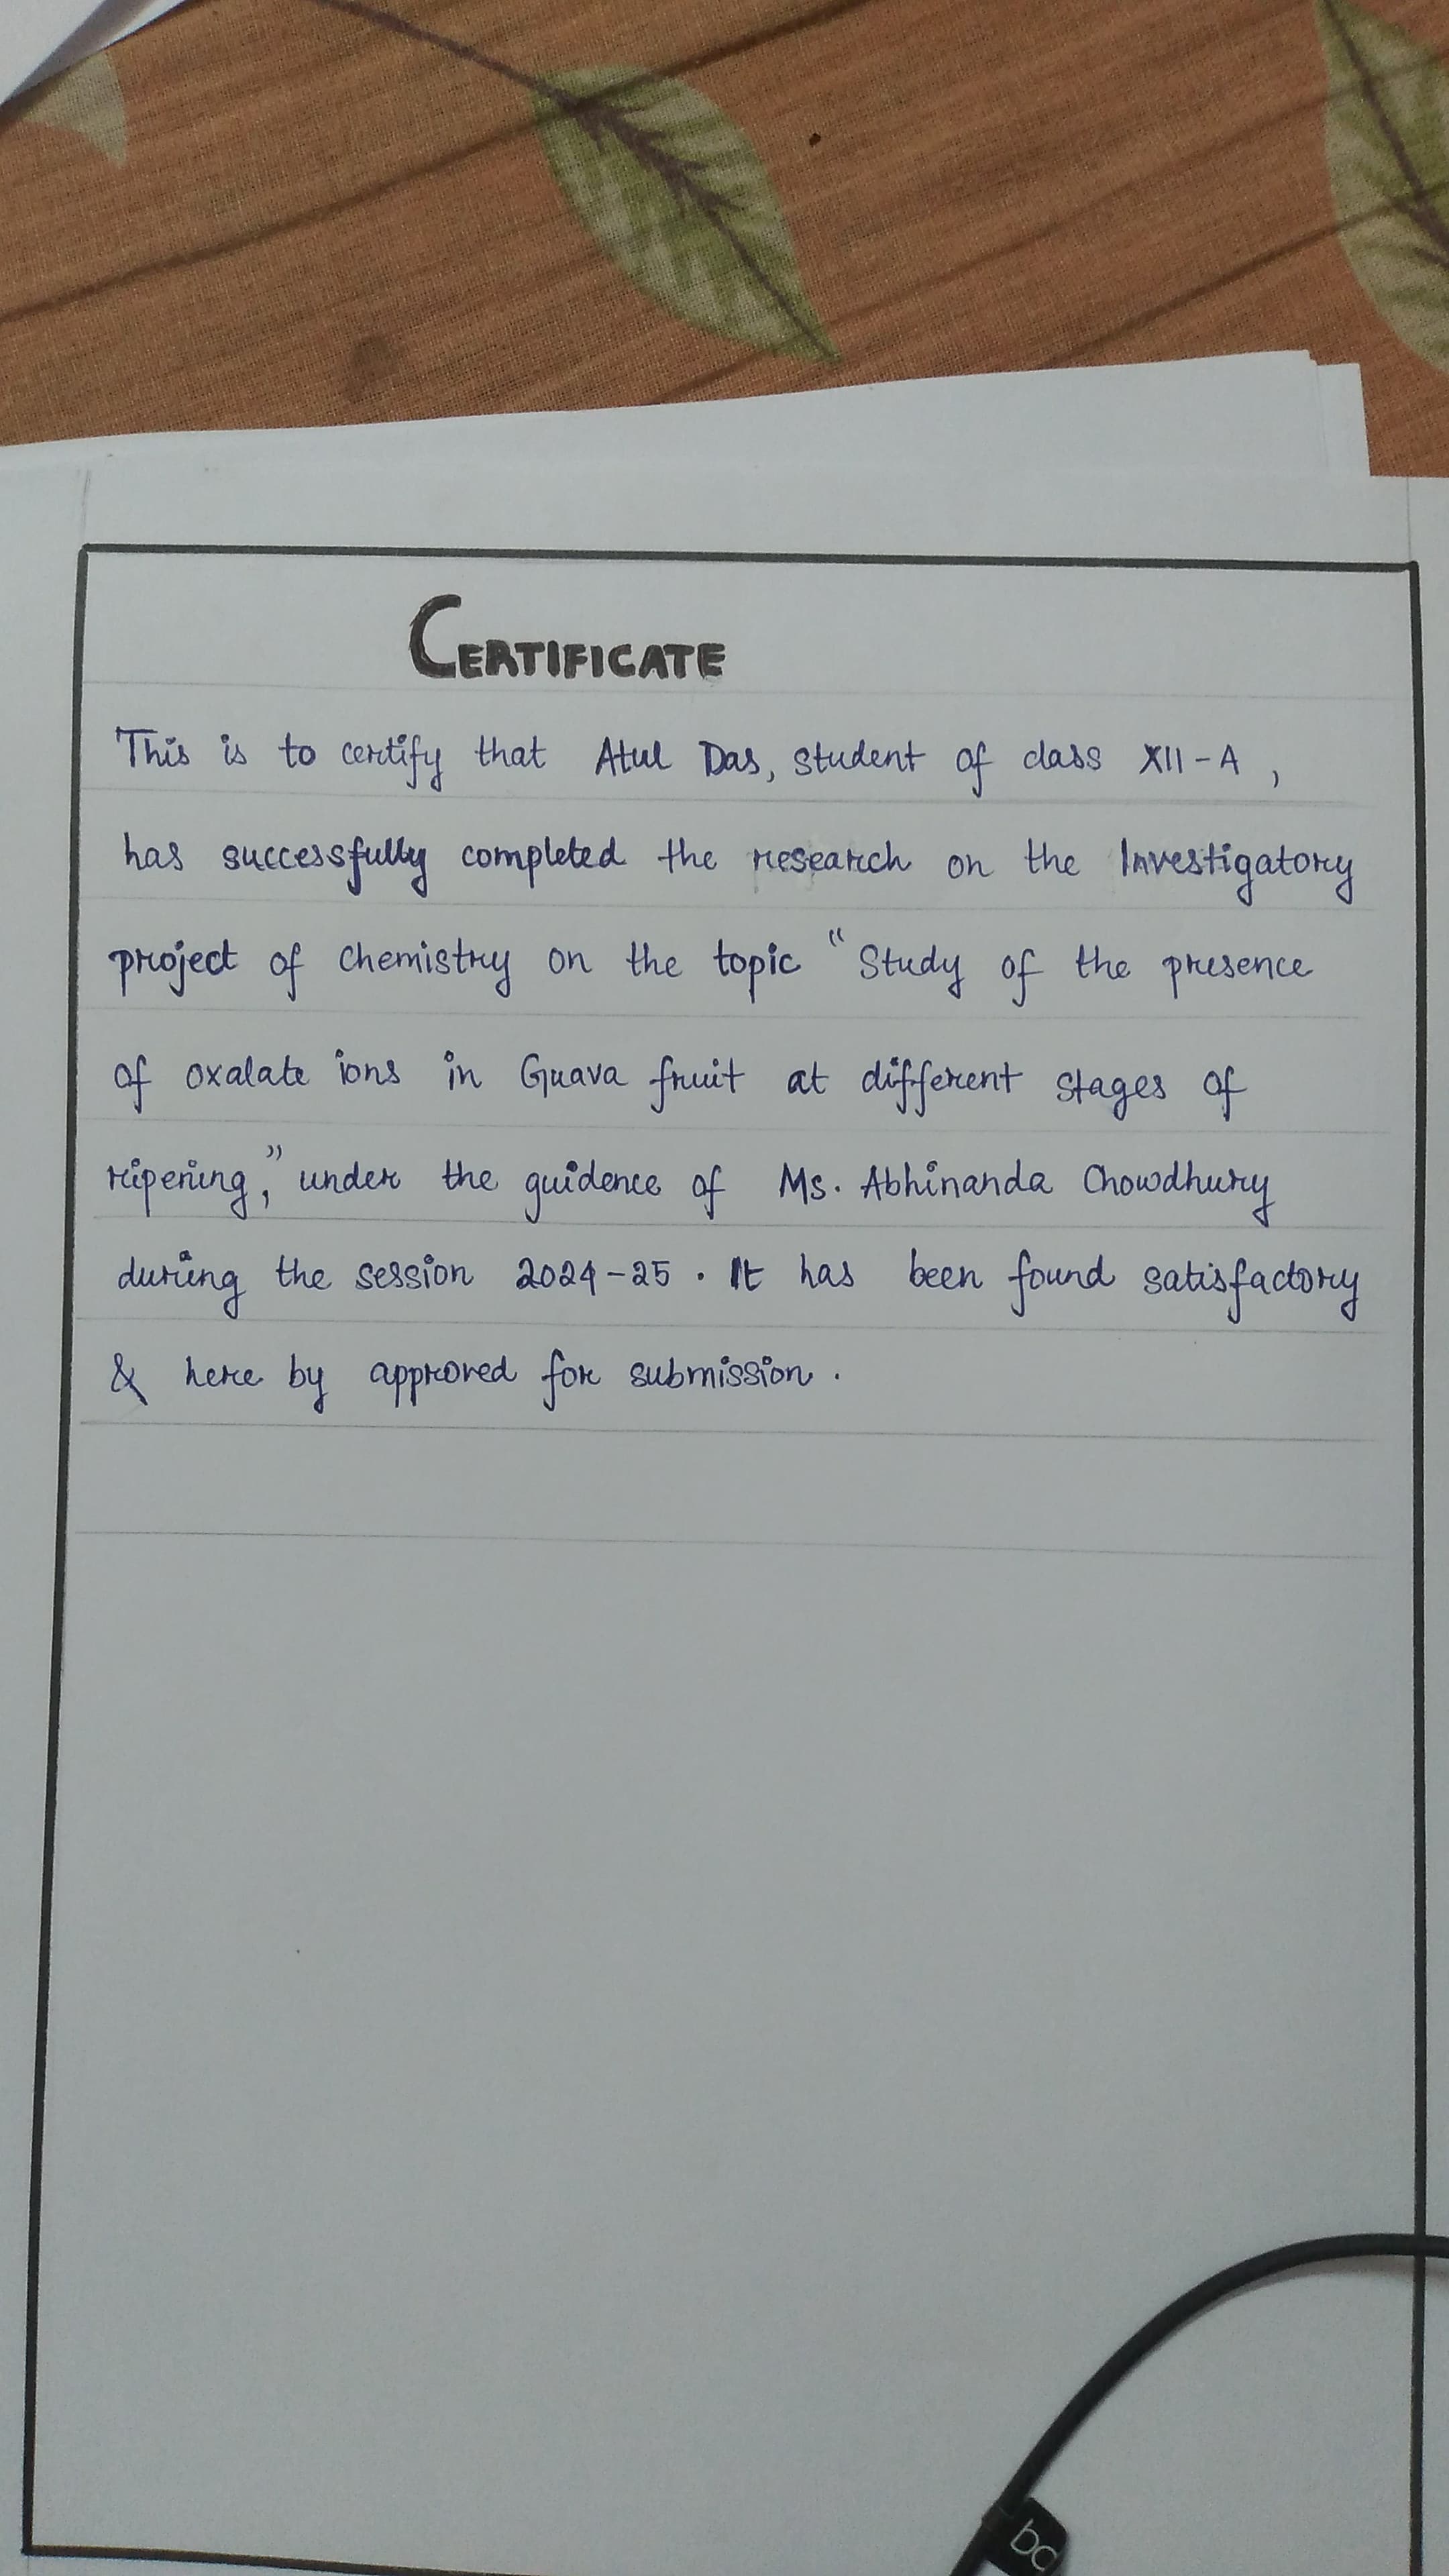 CERTIFICATE
This is to certify that Atul Das, student of class XII-A,
has successfully completed the research on the Investigatory
project of Chemistry on the topic "Study of the presence
of oxalate ions in Guava fruit at different stages of
ripening," under the guidence of Ms. Abhinanda Chowdhury
during the session 2024-25. It has been found satisfactory
& here by approved for submission.